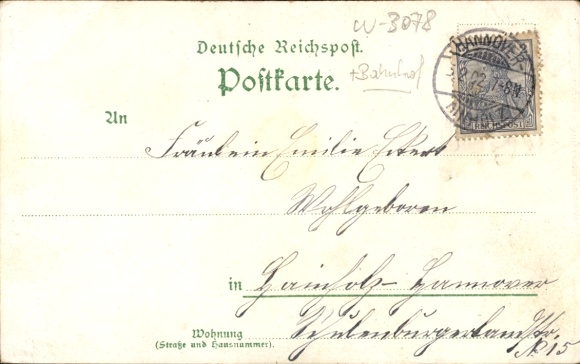 W-3078
Deutsche Reichspost.
Postkarte.
+ Bahnhof
HANNOVER
An
Fräulein Emilie Eckert
Wohlgeboren
in Hainholz-Hannover
Wohnung
(Straße und Hausnummer). Schulenburgerlandstr.
№ 15